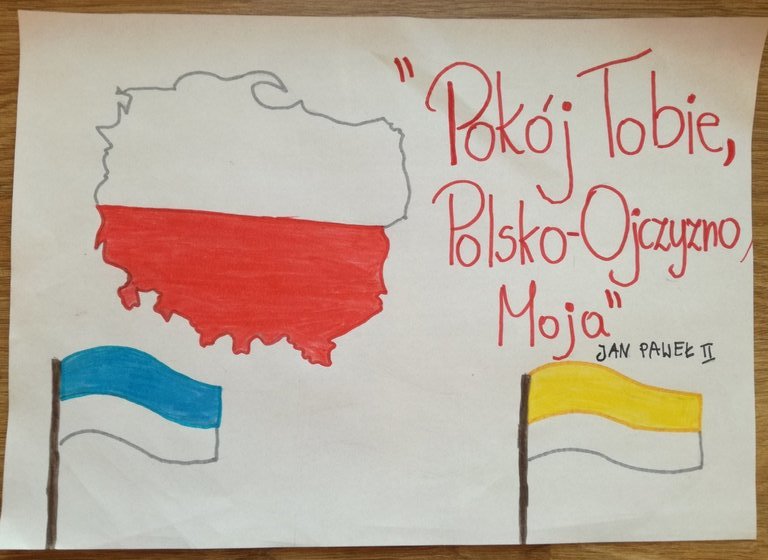 "Pokój Tobie,
Polsko-Ojczyzno,
Moja"
JAN PAWEŁ II